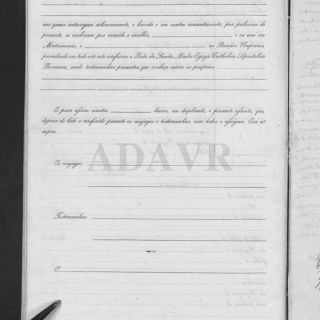 nos quaes interrogou solemnemente, e havido o seu mutuo consentimento, por palavras de
presente, os receberam por marido e mulher, e os uni em
Matrimonio, e as Benções Nupciaes,
procedendo em todo este acto conforme o Rito da Santa Madre Egreja Catholica Apostolica
Romana, sendo testemunhas presentes, que conheço serem os proprios
E para constar lavrei, em duplicado, o presente assento, que,
depois de lido e conferido perante os conjuges e testemunhas, com todos o assigno. Era ut
supra.
Os conjuges
ADAVR
Testemunhas
O